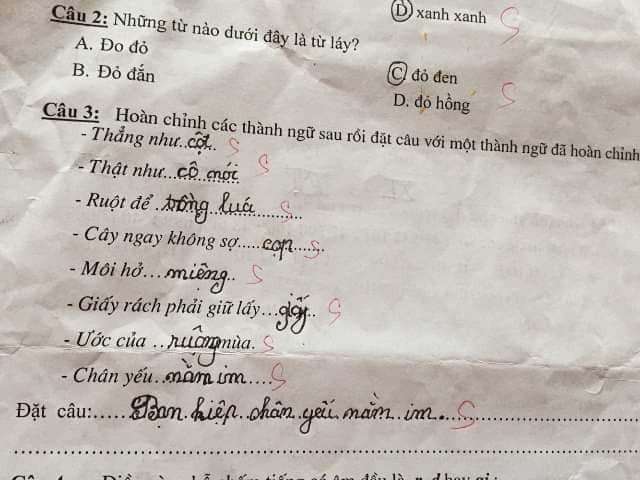 Ⓓ xanh xanh S
Câu 2: Những từ nào dưới đây là từ láy?
A. Đo đỏ
B. Đỏ đắn
Ⓒ đỏ đen S
D. đỏ hồng
Câu 3: Hoàn chỉnh các thành ngữ sau rồi đặt câu với một thành ngữ đã hoàn chỉnh
- Thẳng như..cột.. S
- Thật như...cô nói S
- Ruột để .trồng luá............ S
- Cây ngay không sợ.....cọp...... S
- Môi hở...miệng.. S
- Giấy rách phải giữ lấy...giấy.. S
- Ước của ..ruộng mùa. S
- Chân yếu..nằm im.... S
Đặt câu:.....Bạn hiệp chân yếu nằm im. S